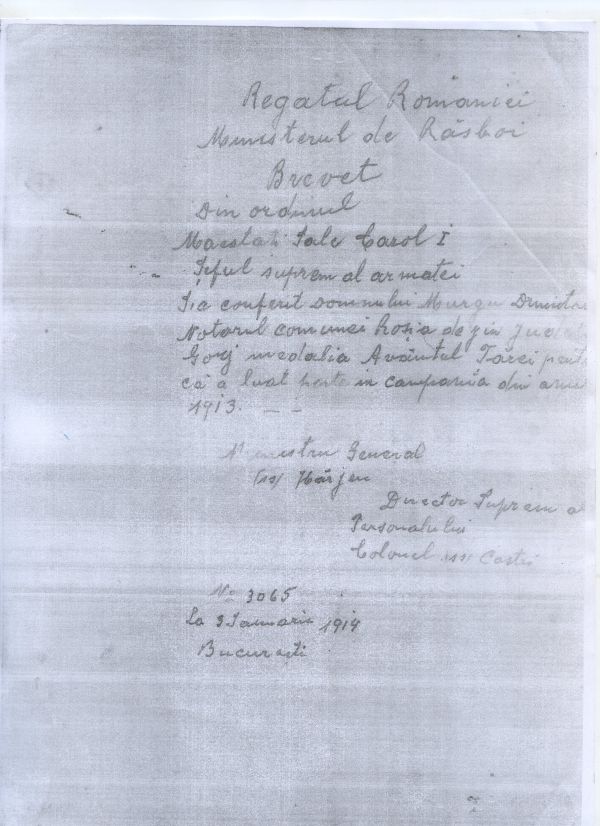 Regatul Romaniei
Ministerul de Răsboi
Brevet
Din ordinul
Maestati Sale Carol I
Șeful suprem al armatei
S,a conferit domnului Murgu Dumitru
Notarul comunei Roșia de jiu Jude
Gorj medalia Avântul Tărei pent
că a luat parte in campania din anu
1913. — —
Ministru General
(ss) Hârjeu
Director Suprem a
Personalului
Colonel (ss)
No 3065
La 3 Ianuarie 1914
Bucuresti